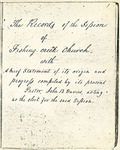 The Records of the Session
of
Fishing creek Church.
with
a brief Statement of its origin and
progress compiled by its present
Pastor, John B. Davies, acting
as the clerk for the said Session.